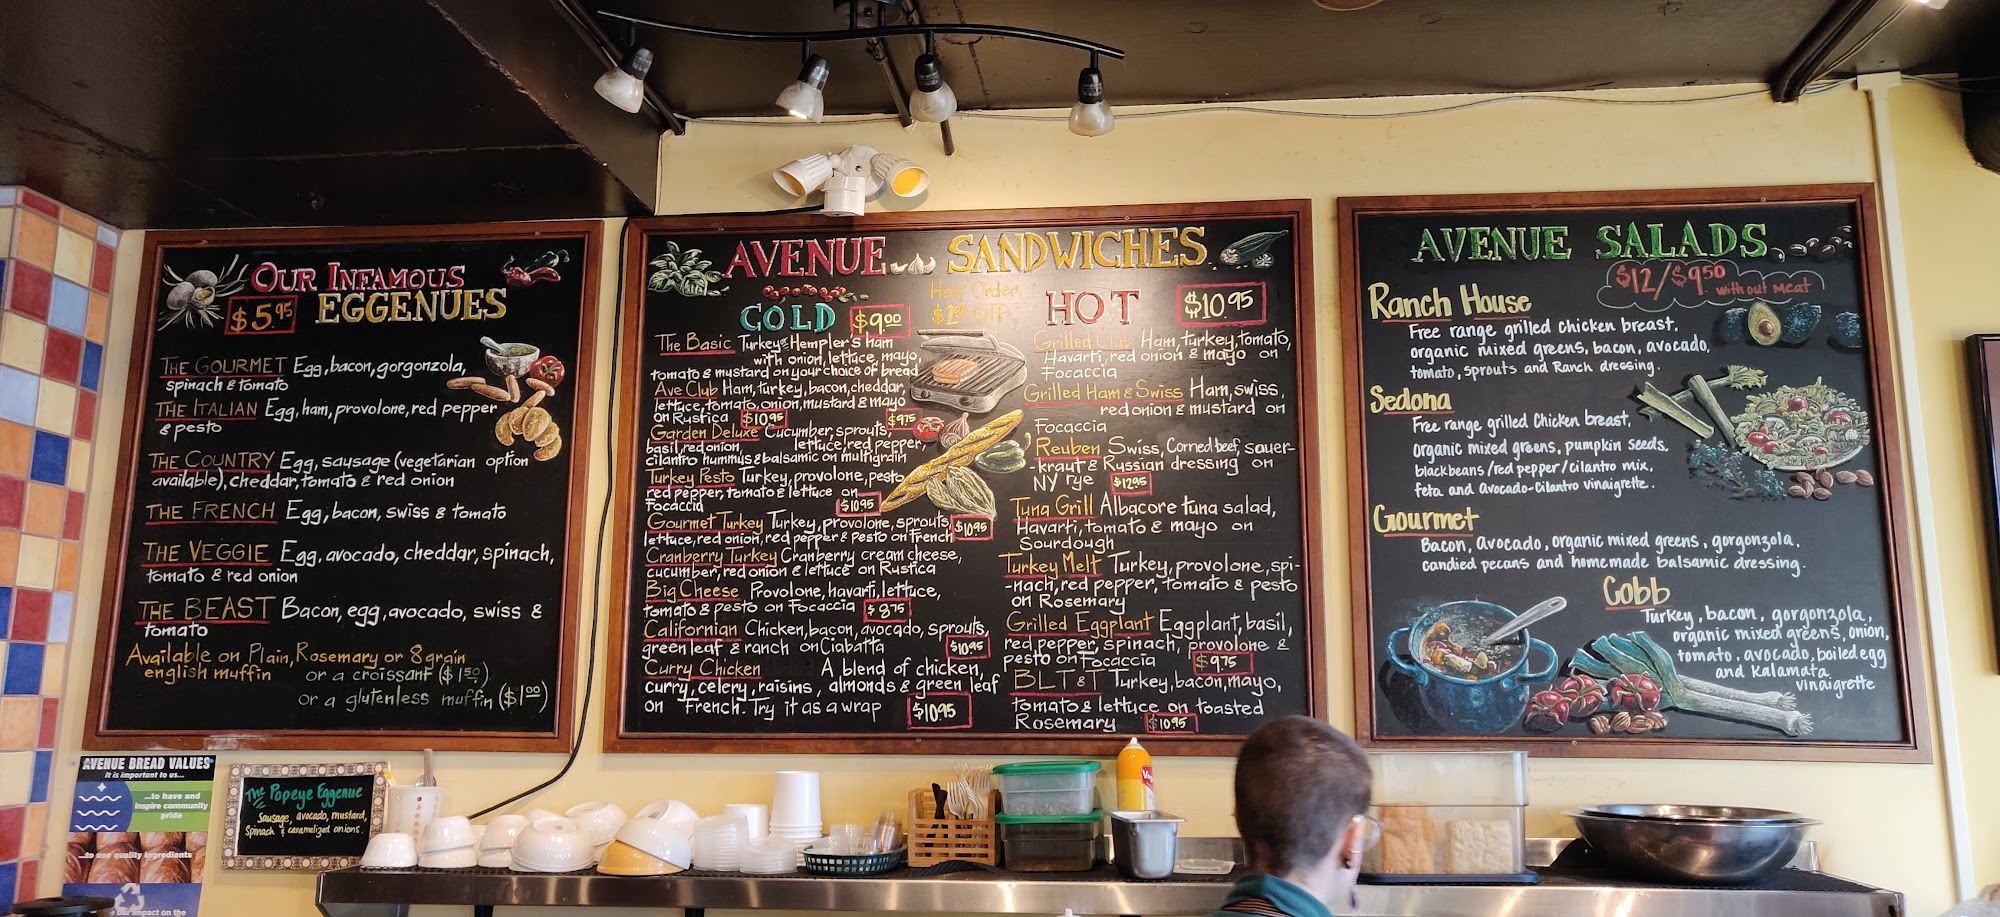 OUR INFAMOUS
$5.95 EGGENUES
THE GOURMET Egg, bacon, gorgonzola,
spinach & tomato
THE ITALIAN Egg, ham, provolone, red pepper
& pesto
THE COUNTRY Egg, sausage (vegetarian option
available), cheddar, tomato & red onion
THE FRENCH Egg, bacon, swiss & tomato
THE VEGGIE Egg, avocado, cheddar, spinach,
tomato & red onion
THE BEAST Bacon, egg, avocado, swiss &
tomato
Available on Plain, Rosemary or 8 grain
english muffin or a croissant ($1.50)
or a glutenless muffin ($1.00)
AVENUE SANDWICHES
Half Order
COLD $9.00
The Basic Turkey & Hempler's ham
with onion, lettuce, mayo,
tomato & mustard on your choice of bread
Ave Club Ham, turkey, bacon, cheddar,
lettuce, tomato, onion, mustard & mayo
on Rustica $10.95
$9.75
Garden Deluxe Cucumber, sprouts,
basil, red onion, lettuce, red pepper,
cilantro hummus & balsamic on multigrain
Turkey Pesto Turkey, provolone, pesto
red pepper, tomato & lettuce on
Focaccia $10.95
Gourmet Turkey Turkey, provolone, sprouts, $10.95
lettuce, red onion, red pepper & pesto on French
Cranberry Turkey Cranberry cream cheese,
cucumber, red onion & lettuce on Rustica
Big Cheese Provolone, havarti, lettuce,
tomato & pesto on Focaccia $8.75
Californian Chicken, bacon, avocado, sprouts,
green leaf & ranch on Ciabatta $10.95
Curry Chicken A blend of chicken,
curry, celery, raisins, almonds & green leaf
on French. Try it as a wrap $10.95
HOT $10.95
Grilled Club Ham, turkey, tomato,
Havarti, red onion & mayo on
Focaccia
Grilled Ham & Swiss Ham, swiss,
red onion & mustard on
Focaccia
Reuben Swiss, Corned beef, sauer-
-kraut & Russian dressing on
NY rye $12.95
Tuna Grill Albacore tuna salad,
Havarti, tomato & mayo on
Sourdough
Turkey Melt Turkey, provolone, spi-
-nach, red pepper, tomato & pesto
on Rosemary
Grilled Eggplant Eggplant, basil,
red pepper, spinach, provolone &
pesto on Focaccia $9.75
BLT & T Turkey, bacon, mayo,
tomato & lettuce on toasted
Rosemary $10.95
AVENUE SALADS
$12/$9.50 without meat
Ranch House
Free range grilled chicken breast,
organic mixed greens, bacon, avocado,
tomato, sprouts and Ranch dressing.
Sedona
Free range grilled Chicken breast,
organic mixed greens, pumpkin seeds,
blackbeans/red pepper/cilantro mix,
feta and Avocado-Cilantro vinaigrette.
Gourmet
Bacon, Avocado, organic mixed greens, gorgonzola,
candied pecans and homemade balsamic dressing.
Cobb
Turkey, bacon, gorgonzola,
organic mixed greens, onion,
tomato, avocado, boiled egg
and Kalamata
vinaigrette
AVENUE BREAD VALUES
It is important to us...
...to have and
inspire community
pride
...to use quality ingredients
our impact on the
The Popeye Eggenue
Sausage, avocado, mustard,
Spinach & caramelized onions.